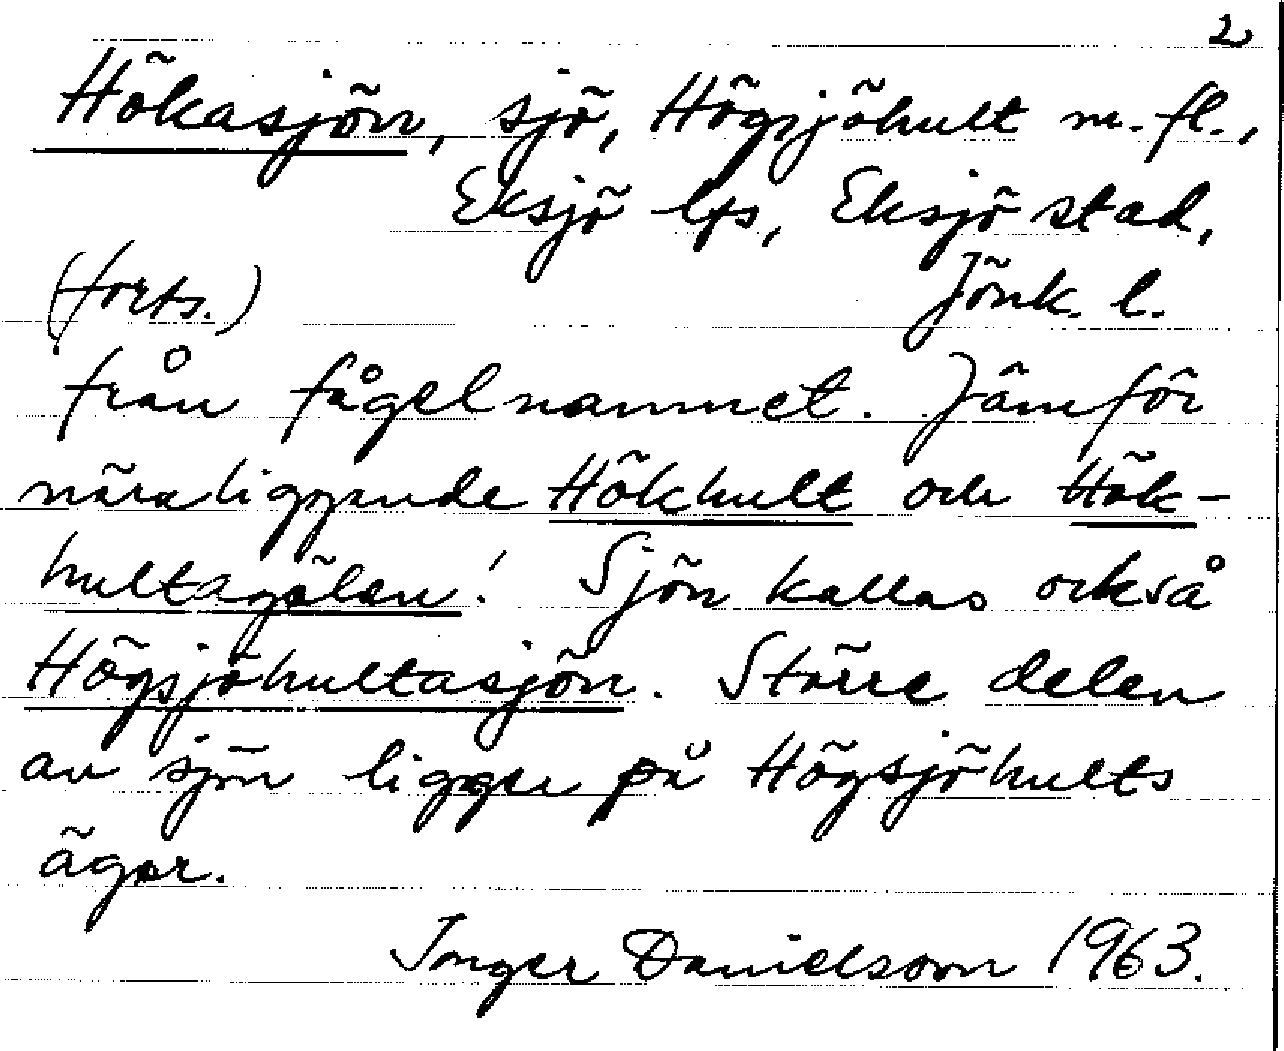 2
Hökasjön, sjö, Högsjöhult m.fl.,
Eksjö lfs, Eksjö stad,
(forts.) Jönk. l.
från fågelnamnet. Jämför
näraliggande Hökhult och Hök-
hultagölen! Sjön kallas också
Högsjöhultasjön. Större delen
av sjön ligger på Högsjöhults
ägor.
Inger Danielsson 1963.